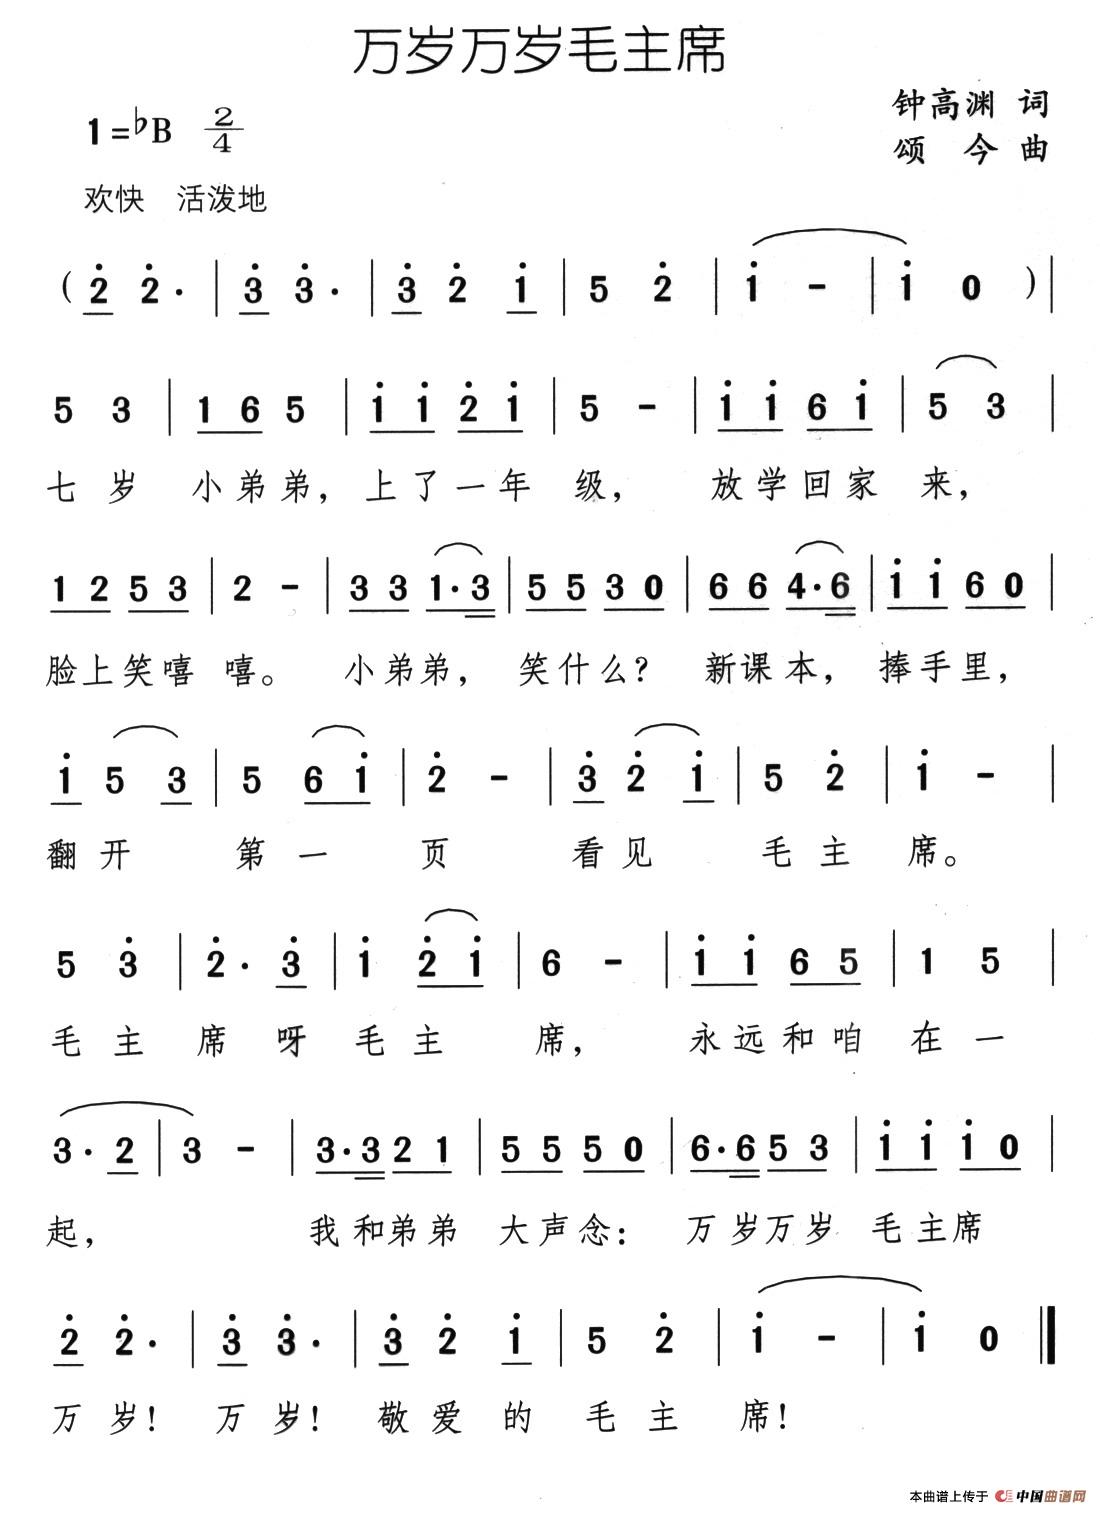 万岁万岁毛主席
钟高渊 词
1=♭B 2/4
颂 今 曲
欢快 活泼地
( 2̇ 2̇· | 3̇ 3̇· | 3̇ 2̇ 1̇ | 5 2̇ | 1̇ - | 1̇ 0 ) |
5 3 | 1 6 5 | 1̇ 1̇ 2̇ 1̇ | 5 - | 1̇ 1̇ 6 1̇ | 5 3 |
七 岁 小 弟 弟, 上 了 一 年 级, 放 学 回 家 来,
1 2 5 3 | 2 - | 3 3 1·3 | 5 5 3 0 | 6 6 4·6 | 1̇ 1̇ 6 0 |
脸上笑嘻 嘻。 小弟弟, 笑什么? 新课本, 捧手里,
1̇ 5 3 | 5 6 1̇ | 2̇ - | 3̇ 2̇ 1̇ | 5 2̇ | 1̇ - |
翻开 第一 页 看见 毛主 席。
5 3̇ | 2̇· 3̇ | 1̇ 2̇ 1̇ | 6 - | 1̇ 1̇ 6 5 | 1 5 |
毛主 席呀 毛主 席, 永远和咱 在一
3· 2 | 3 - | 3·3 2 1 | 5 5 5 0 | 6·6 5 3 | 1̇ 1̇ 1̇ 0 |
起, 我和弟弟 大声念: 万岁万岁 毛主席
2̇ 2̇· | 3̇ 3̇· | 3̇ 2̇ 1̇ | 5 2̇ | 1̇ - | 1̇ 0 ‖
万岁! 万岁! 敬爱的 毛主 席!
本曲谱上传于 中国曲谱网